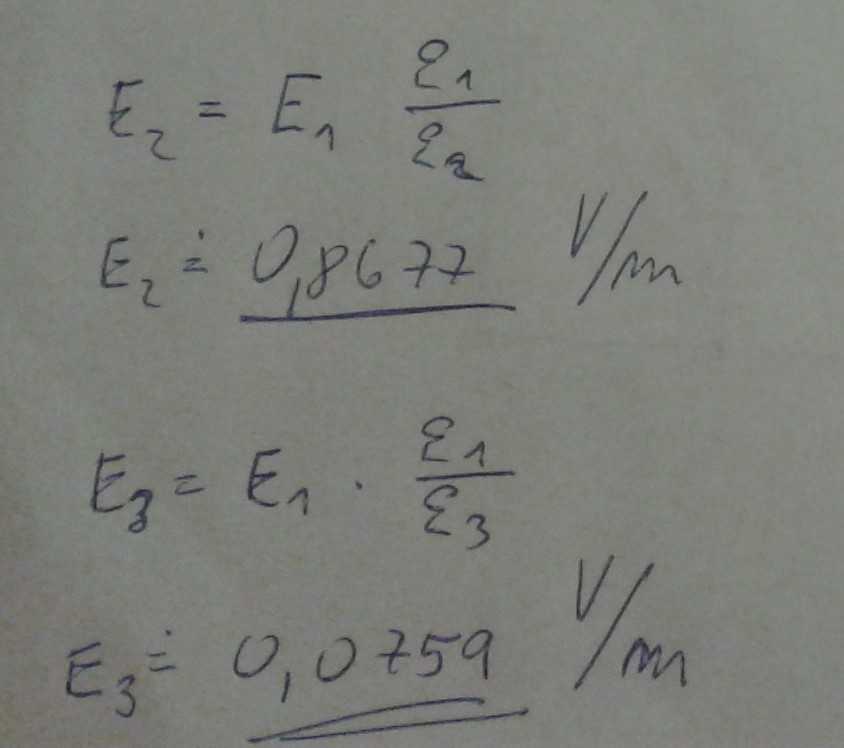 E₂ = E₁ ε₁/ε₂
E₂ ≐ 0,8677 V/m
E₃ = E₁ · ε₁/ε₃
E₃ ≐ 0,0759 V/m